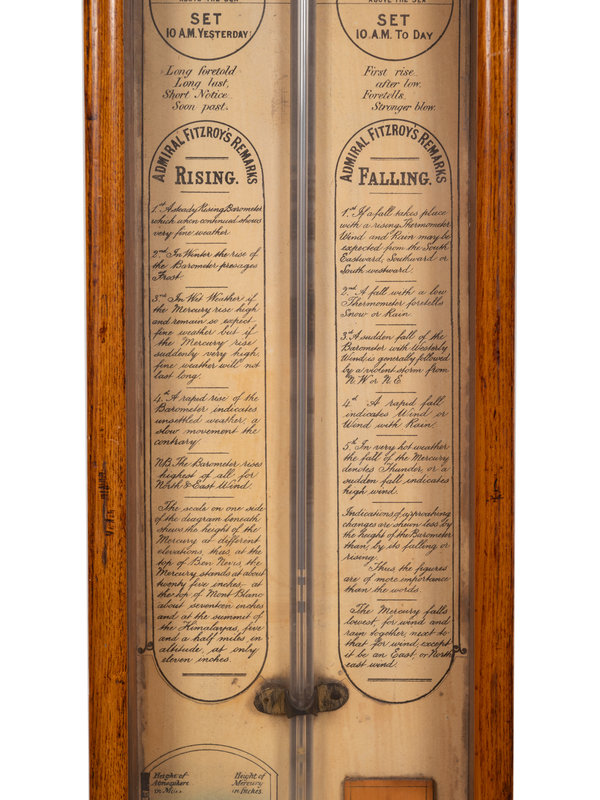 ABOVE THE SEA
SET
10 A.M. YESTERDAY
Long foretold
Long last,
Short Notice
Soon past.
ADMIRAL FITZROY'S REMARKS
RISING.
1st A steady Rising Barometer
which when continued shows
very fine weather
2nd In Winter the rise of
the Barometer presages
Frost
3rd In Wet Weather if
the Mercury rise high
and remain so expect
fine weather but if
the Mercury rise
suddenly very high
fine weather will not
last long.
4th A rapid rise of the
Barometer indicates
unsettled weather, a
slow movement the
contrary.
NB. The Barometer rises
highest of all for
North & East Wind
The scale on one side
of the diagram beneath
shews the height of the
Mercury at different
elevations, thus, at the
top of Ben Nevis the
Mercury stands at about
twenty five inches, at
the top of Mont Blanc
about seventeen inches
and at the summit of
the Himalayas, five
and a half miles in
altitude, at only
eleven inches.
Height of
Atmosphere
in Miles
Height of
Mercury
in Inches.
ABOVE THE SEA
SET
10 A.M. TO DAY
First rise
after low,
Foretells
Stronger blow.
ADMIRAL FITZROY'S REMARKS
FALLING.
1st If a fall takes place
with a rising Thermometer
Wind and Rain may be
expected from the South
Eastward, Southward or
South westward.
2nd A fall with a low
Thermometer foretells
Snow or Rain
3rd A sudden fall of the
Barometer with Westerly
Wind is generally followed
by a violent storm from
N.W or N.E
4th A rapid fall
indicates Wind or
Wind with Rain.
5th In very hot weather
the fall of the Mercury
denotes Thunder, or a
sudden fall indicates
high wind.
Indications of approaching
changes are shewn less by
the height of the Barometer
than by its falling or
rising.
Thus the figures
are of more importance
than the words
The Mercury falls
lowest, for wind and
rain together, next to
that for wind, except
it be an East, or North
east wind.